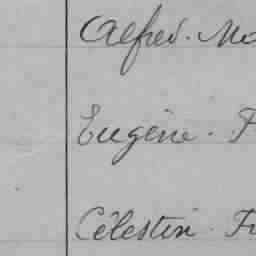 Alfred. Ma
Eugène. F
Célestin. Fr